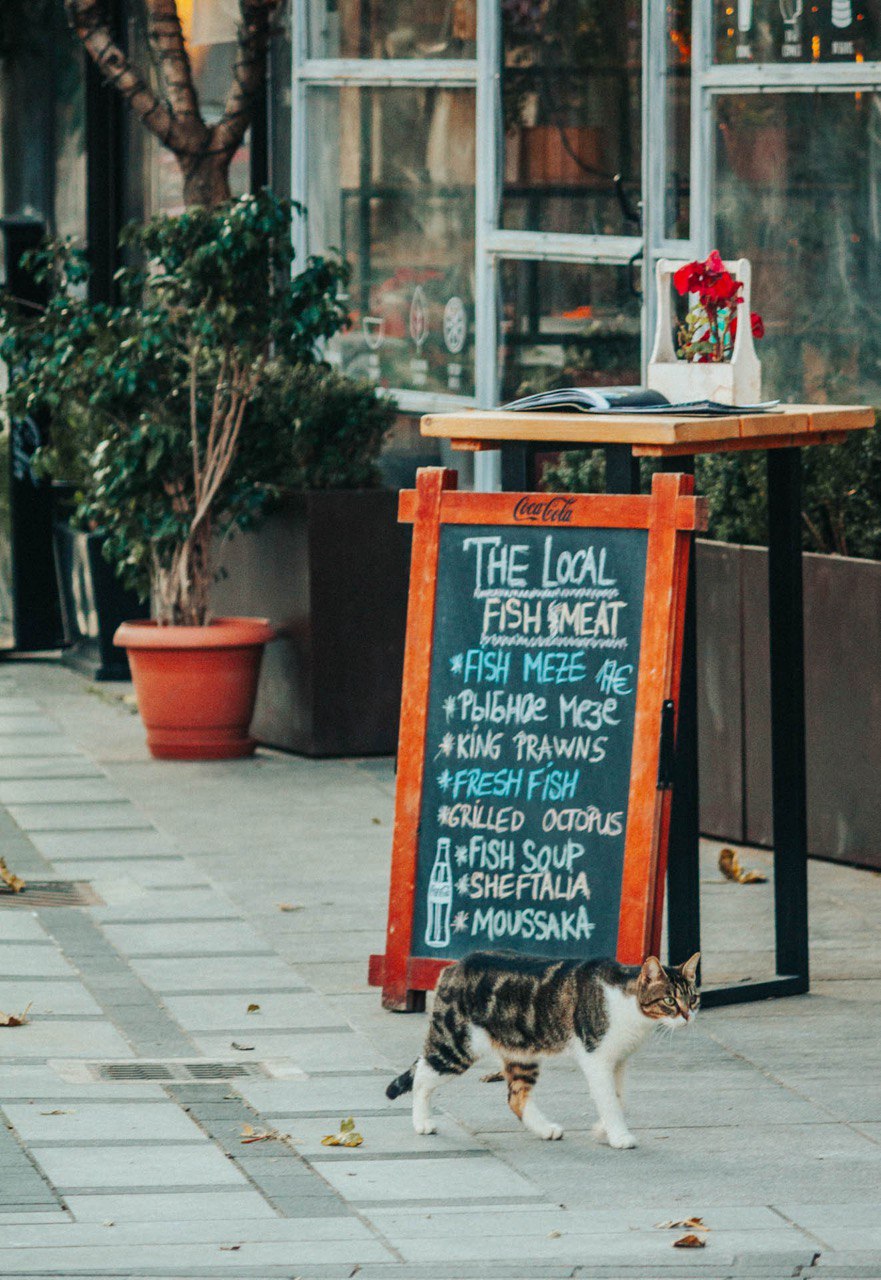 Coca-Cola
THE LOCAL
FISH & MEAT
*FISH MEZE 17€
*РЫБНОЕ МЕЗЕ
*KING PRAWNS
*FRESH FISH
*GRILLED OCTOPUS
*FISH SOUP
*SHEFTALIA
*MOUSSAKA
Coca-Cola